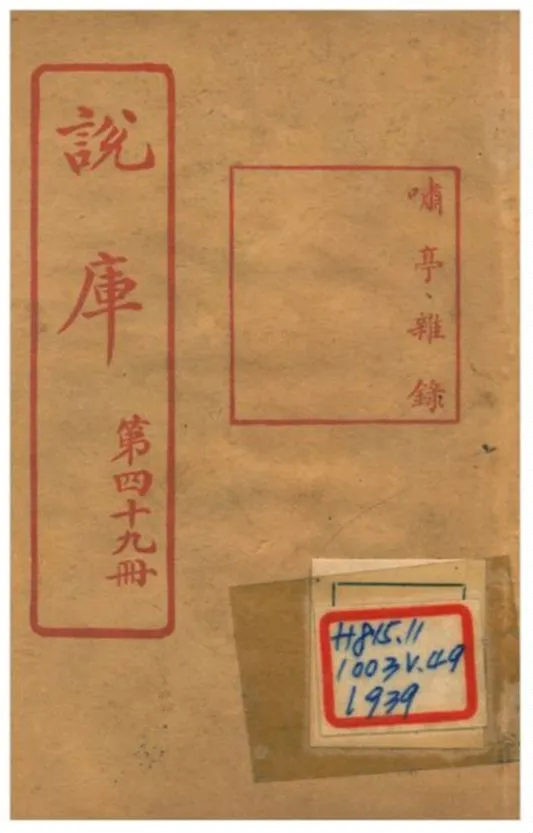 嘯亭雜錄
說庫
第四十九冊
H815.11
1003V.49
1939